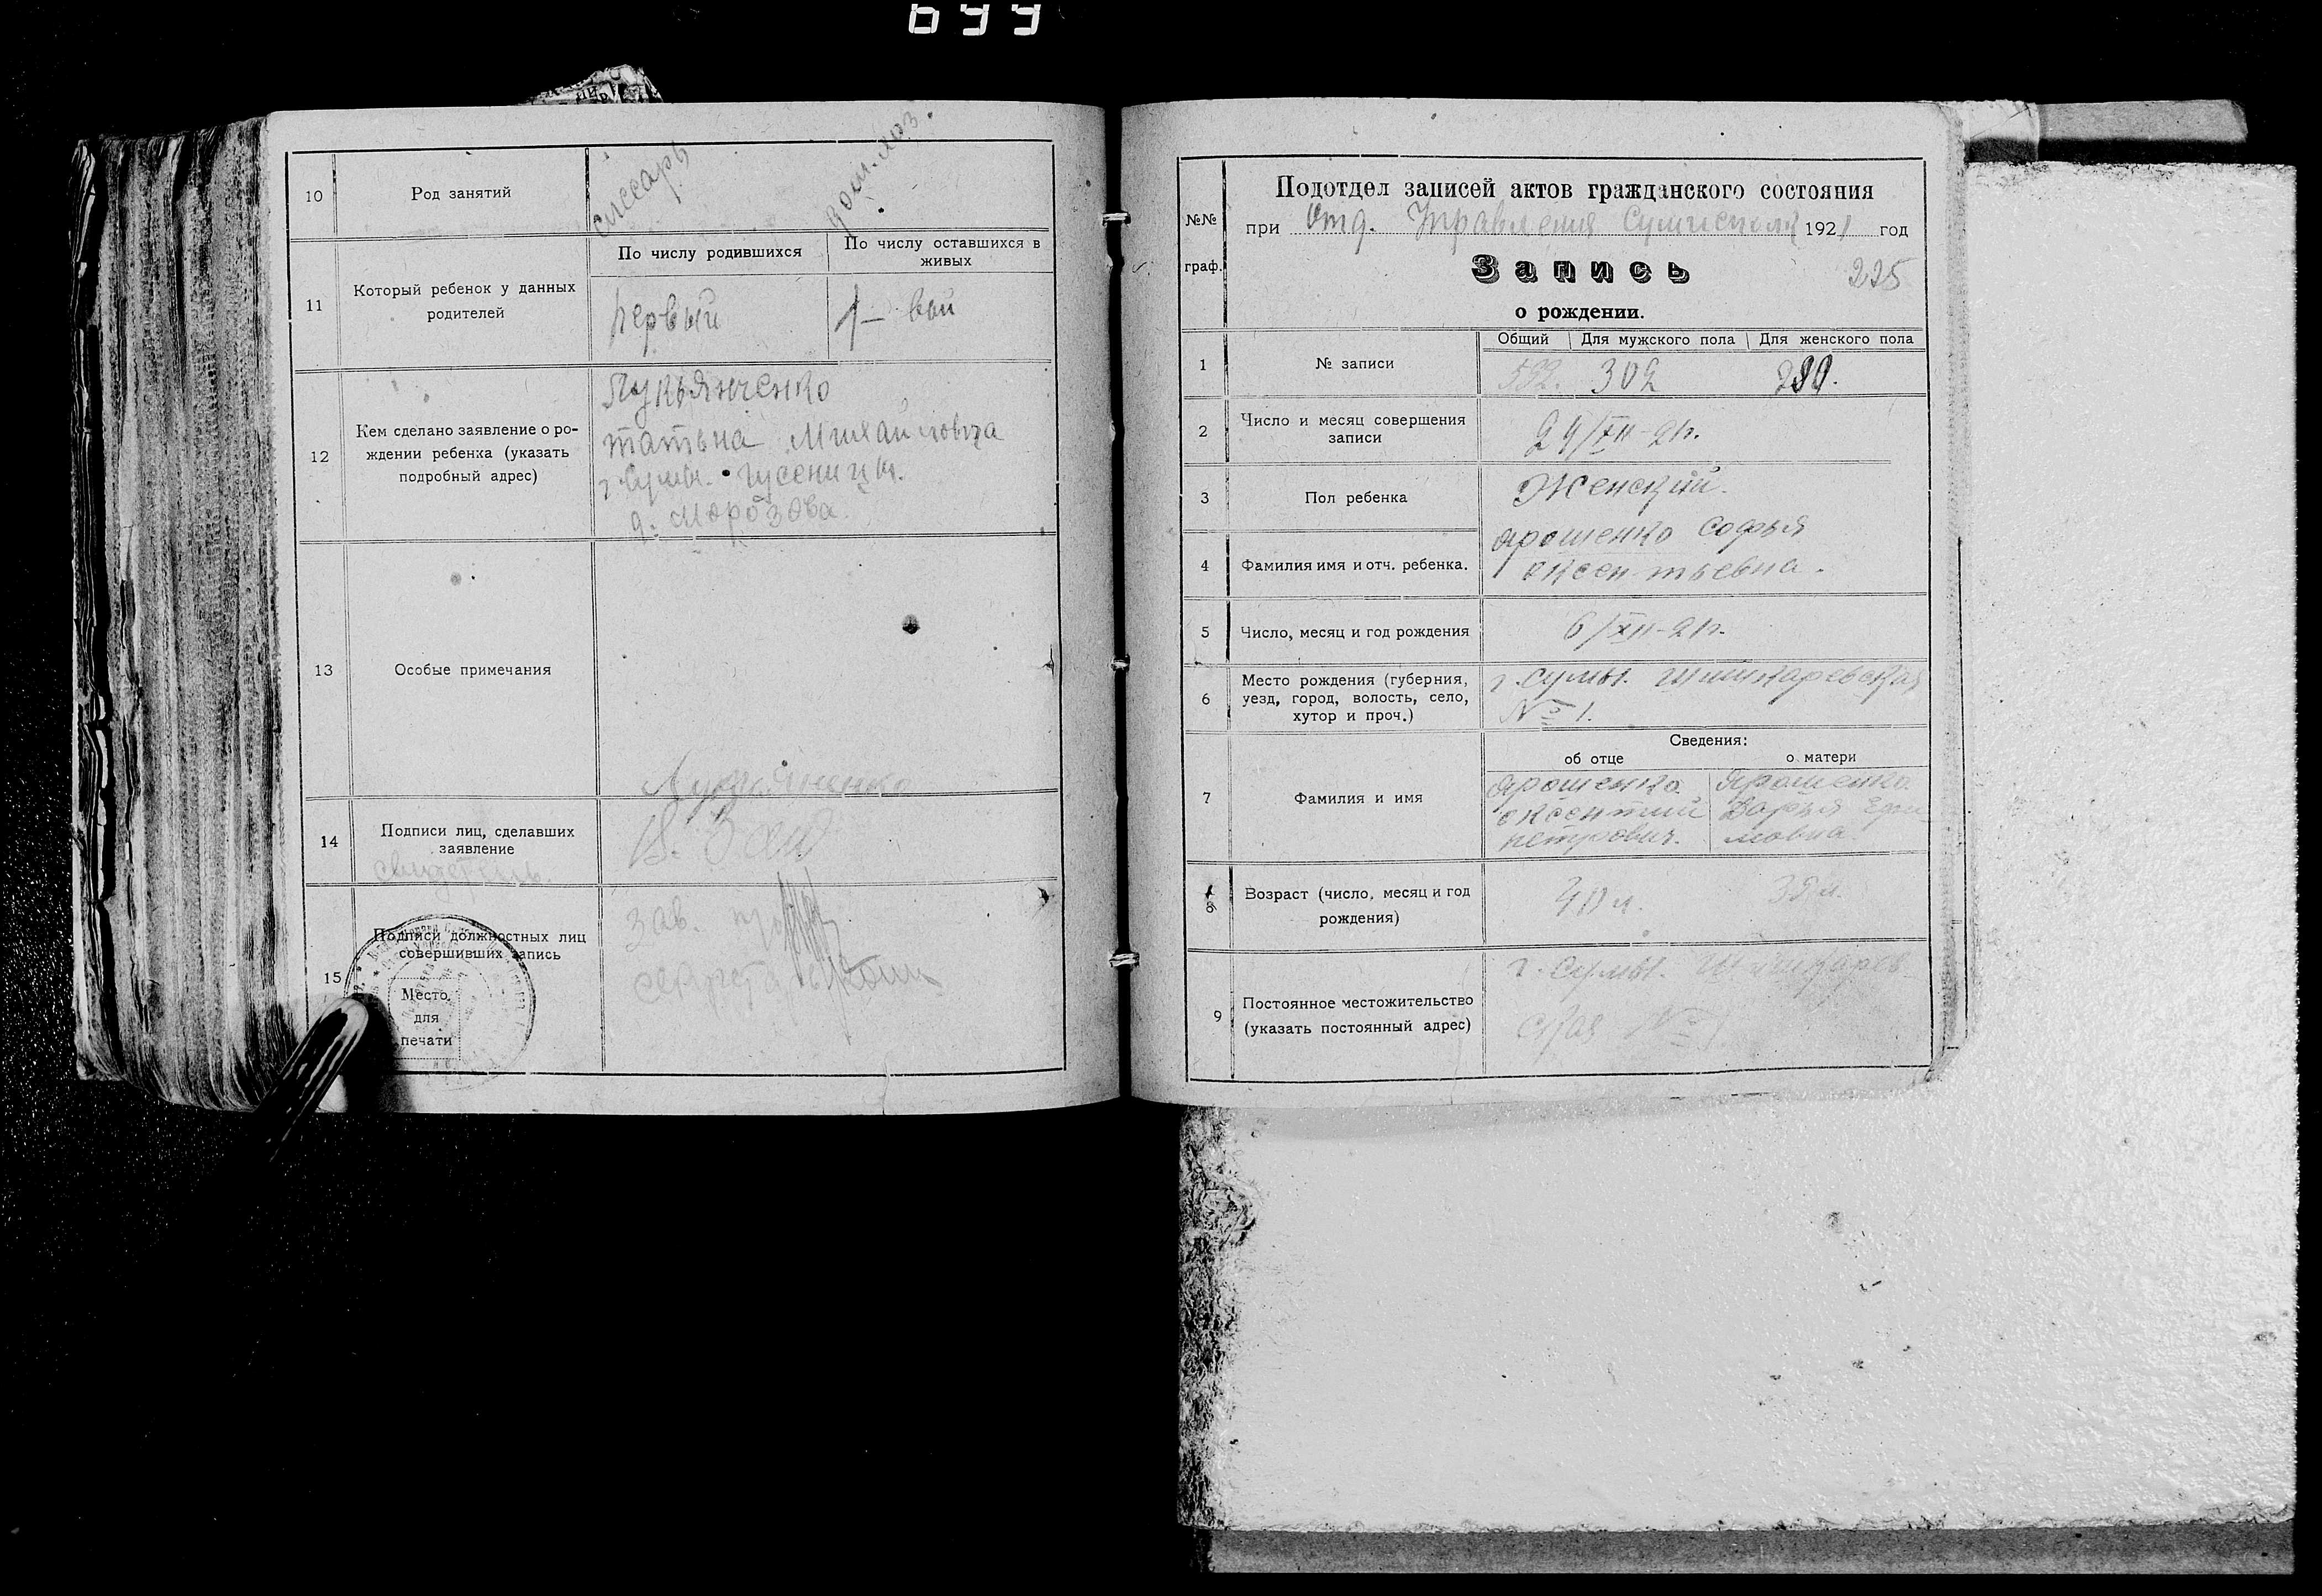 699
10
Род занятий
слесарь
дом. хоз.
11
Который ребенок у данных
родителей
По числу родившихся
По числу оставшихся в
живых
первый
1 – вый
12
Кем сделано заявление о ро-
ждении ребенка (указать
подробный адрес)
Лукьянченко
татьна Михайловна
г. Сумы.
д. Морозова.
13
Особые примечания
14
Подписи лиц, сделавших
заявление
свидетель.
15
Подписи должностных лиц
совершивших запись
Место
для
печати
зав.
секретарь
№№
граф.
Подотдел записей актов гражданского состояния
при Отд. Управления 1921 год
Запись
225
о рождении.
1
№ записи
Общий
Для мужского пола
Для женского пола
592.
302
290.
2
Число и месяц совершения
записи
24/XII-21г.
3
Пол ребенка
Женский.
4
Фамилия имя и отч. ребенка.
Ярошенко Софья
ексентьевна.
5
Число, месяц и год рождения
6/XII-21г.
6
Место рождения (губерния,
уезд, город, волость, село,
хутор и проч.)
г. Сумы. Шишкаревская
№ 1.
7
Фамилия и имя
Сведения:
об отце
о матери
Ярошенко
ексентий
петрович.
Ярошенко
Дарья Ефи
мовна.
8
Возраст (число, месяц и год
рождения)
40 л.
9
Постоянное местожительство
(указать постоянный адрес)
г. Сумы. Шишкарев
ская № 1